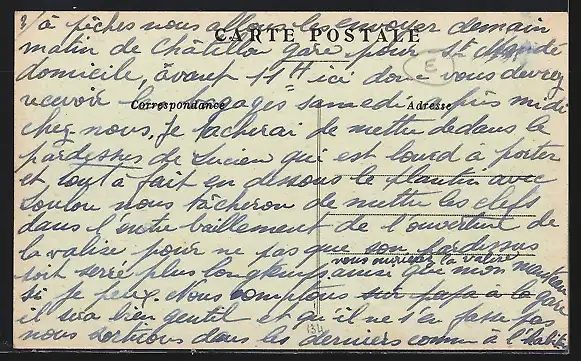 3/ à pêches nous allons les envoyer demain
CARTE POSTALE
matin de Châtillon gare pour St Mandé
E
domicile, avant 11H ici donc vous devrez
recevoir les bagages samedi après midi
Correspondance Adresse
chez nous. Je tâcherai de mettre dedans le
pardessus de Lucien qui est lourd à porter
et tout à fait en dessous le plantin avec
Loulou nous tâcherons de mettre les clefs
dans l'entre baillement de l'ouverture de
la valise pour ne pas que son pardessus
vous ouvrirez la valise
soit serré plus longtemps ainsi que mon manteau
si je peux. Nous comptons sur papa à la gare
il sera bien gentil et qu'il ne s'en fasse pas
134
nous sortirons dans les derniers comme à l'habitude